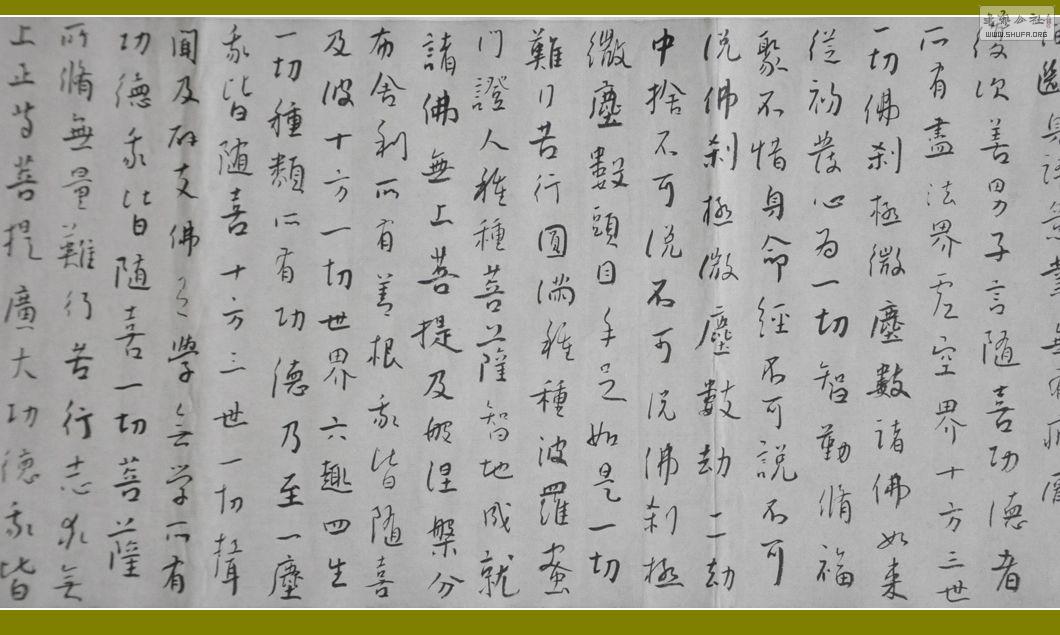 復次善男子言隨喜功德者
所有盡法界虛空界十方三世
一切佛刹極微塵數諸佛如來
從初發心為一切智勤脩福
聚不惜身命經不可說不可
說佛刹極微塵數劫一一劫
中捨不可說不可說佛刹極
微塵數頭目手足如是一切
難行苦行圓滿種種波羅蜜
門證入種種菩薩智地成就
諸佛無上菩提及般涅槃分
布舍利所有善根我皆隨喜
及彼十方一切世界六趣四生
一切種類所有功德乃至一塵
我皆隨喜十方三世一切聲
聞及辟支佛有學無學所有
功德我皆隨喜一切菩薩
所脩無量難行苦行志求無
上正等菩提廣大功德我皆
WWW.SHUFA.ORG